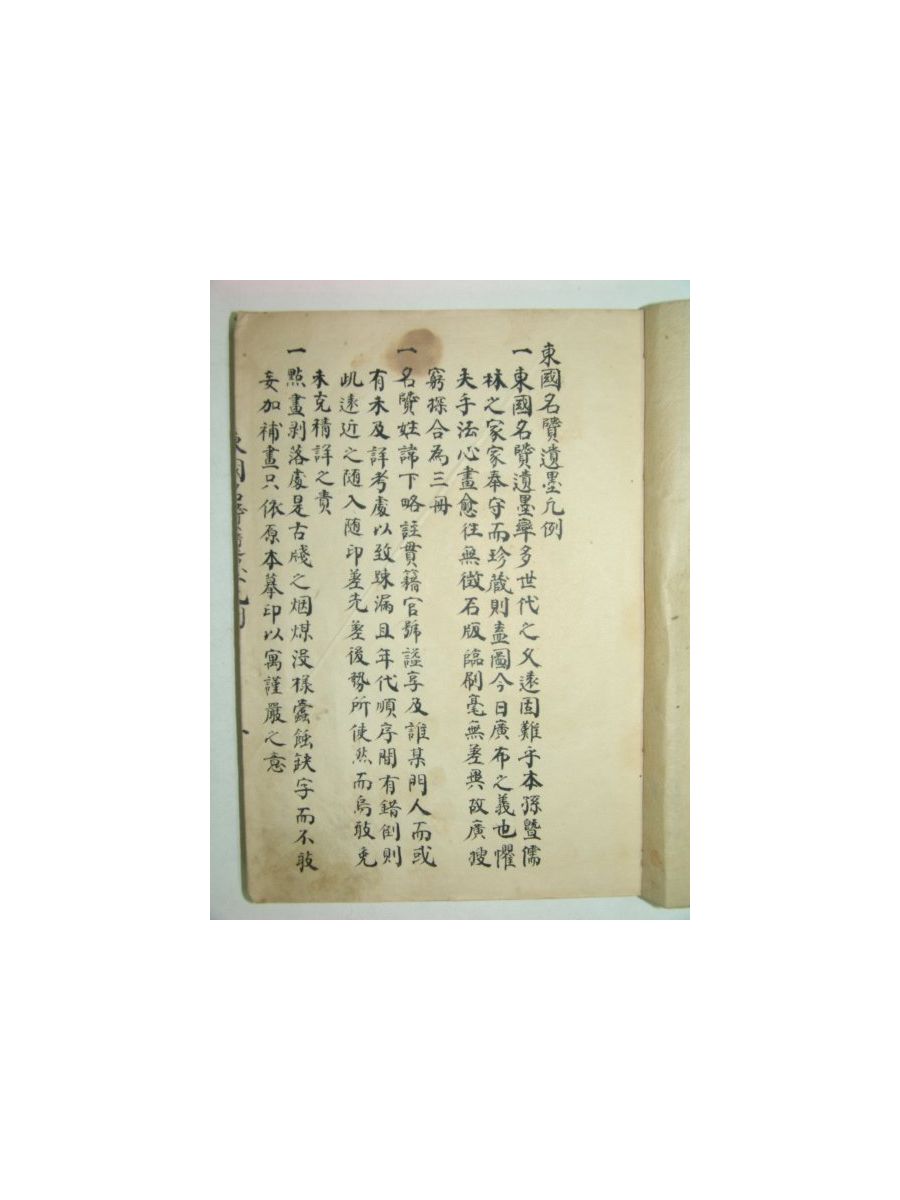 東國名賢遺墨凡例
一東國名賢遺墨率多世代之久遠固難乎本孫曁儒
林之家家奉守而珍藏則盍圖今日廣布之義也懼
夫手法心畫愈往無徵石版臨刷毫無差異故廣搜
窮探合為三冊
一名賢姓諱下略註貫籍官號諡享及誰某門人而或
有未及詳考處以致踈漏且年代順序間有錯倒則
此遠近之随入随印差先差後勢所使然而烏敢免
未充精詳之責
一點畫剥落處是古牋之烟煤漫樣蠹蝕缺字而不敢
妄加補畫只依原本摹印以寓謹嚴之意